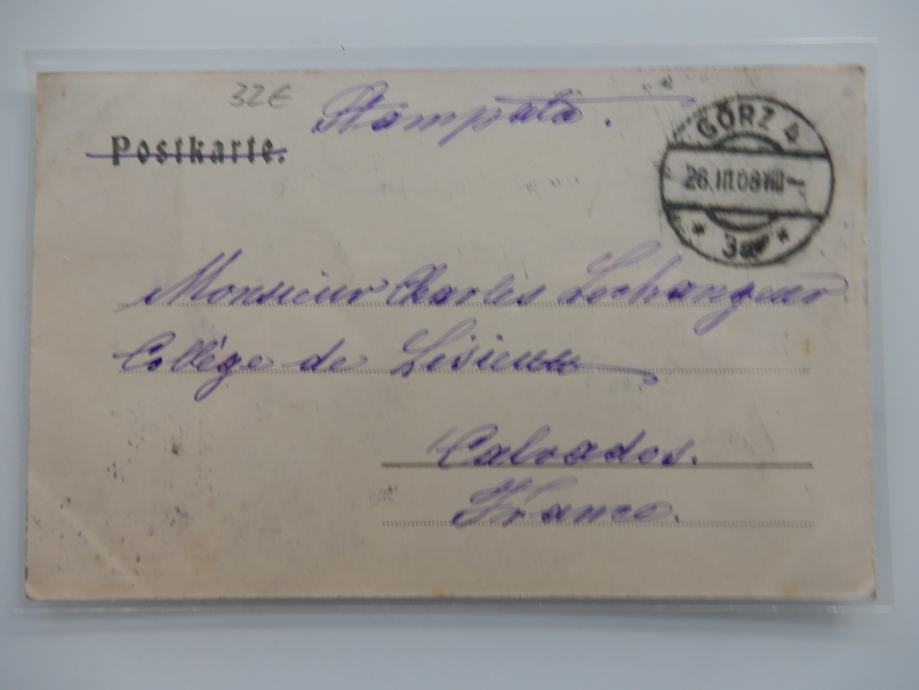 32€
Stampata.
Postkarte.
GÖRZ 4
26.III.08 VIII–
* 3a *
Monsieur Charles Lechangeur
Collège de Lisieux
Calvados.
France.